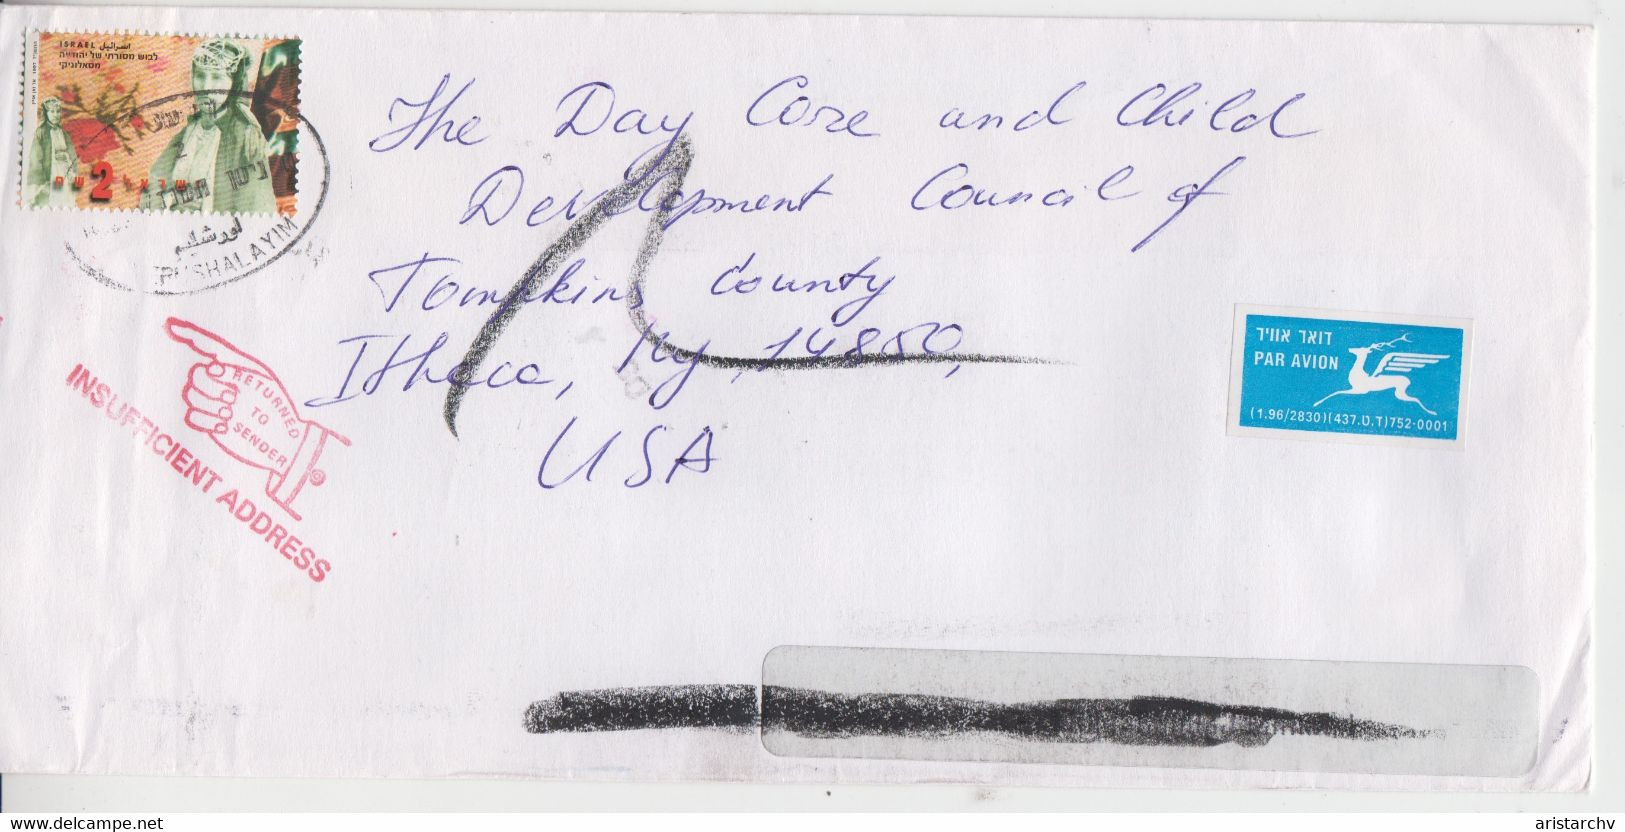 ISRAEL اسرائيل
לבוש מסורתי של יהודייה
מסאלוניקי
ישראל 2
ניסן
لورشليم
YERUSHALAYIM
The Day Core and Child
Development Council of
Tompkins County
Ithaca, Ny, 14850,
USA
RETURNED
TO
SENDER
INSUFFICIENT ADDRESS
דואר אוויר
PAR AVION
(1.96/2830)(437.D.T)752-0001
aristarchv